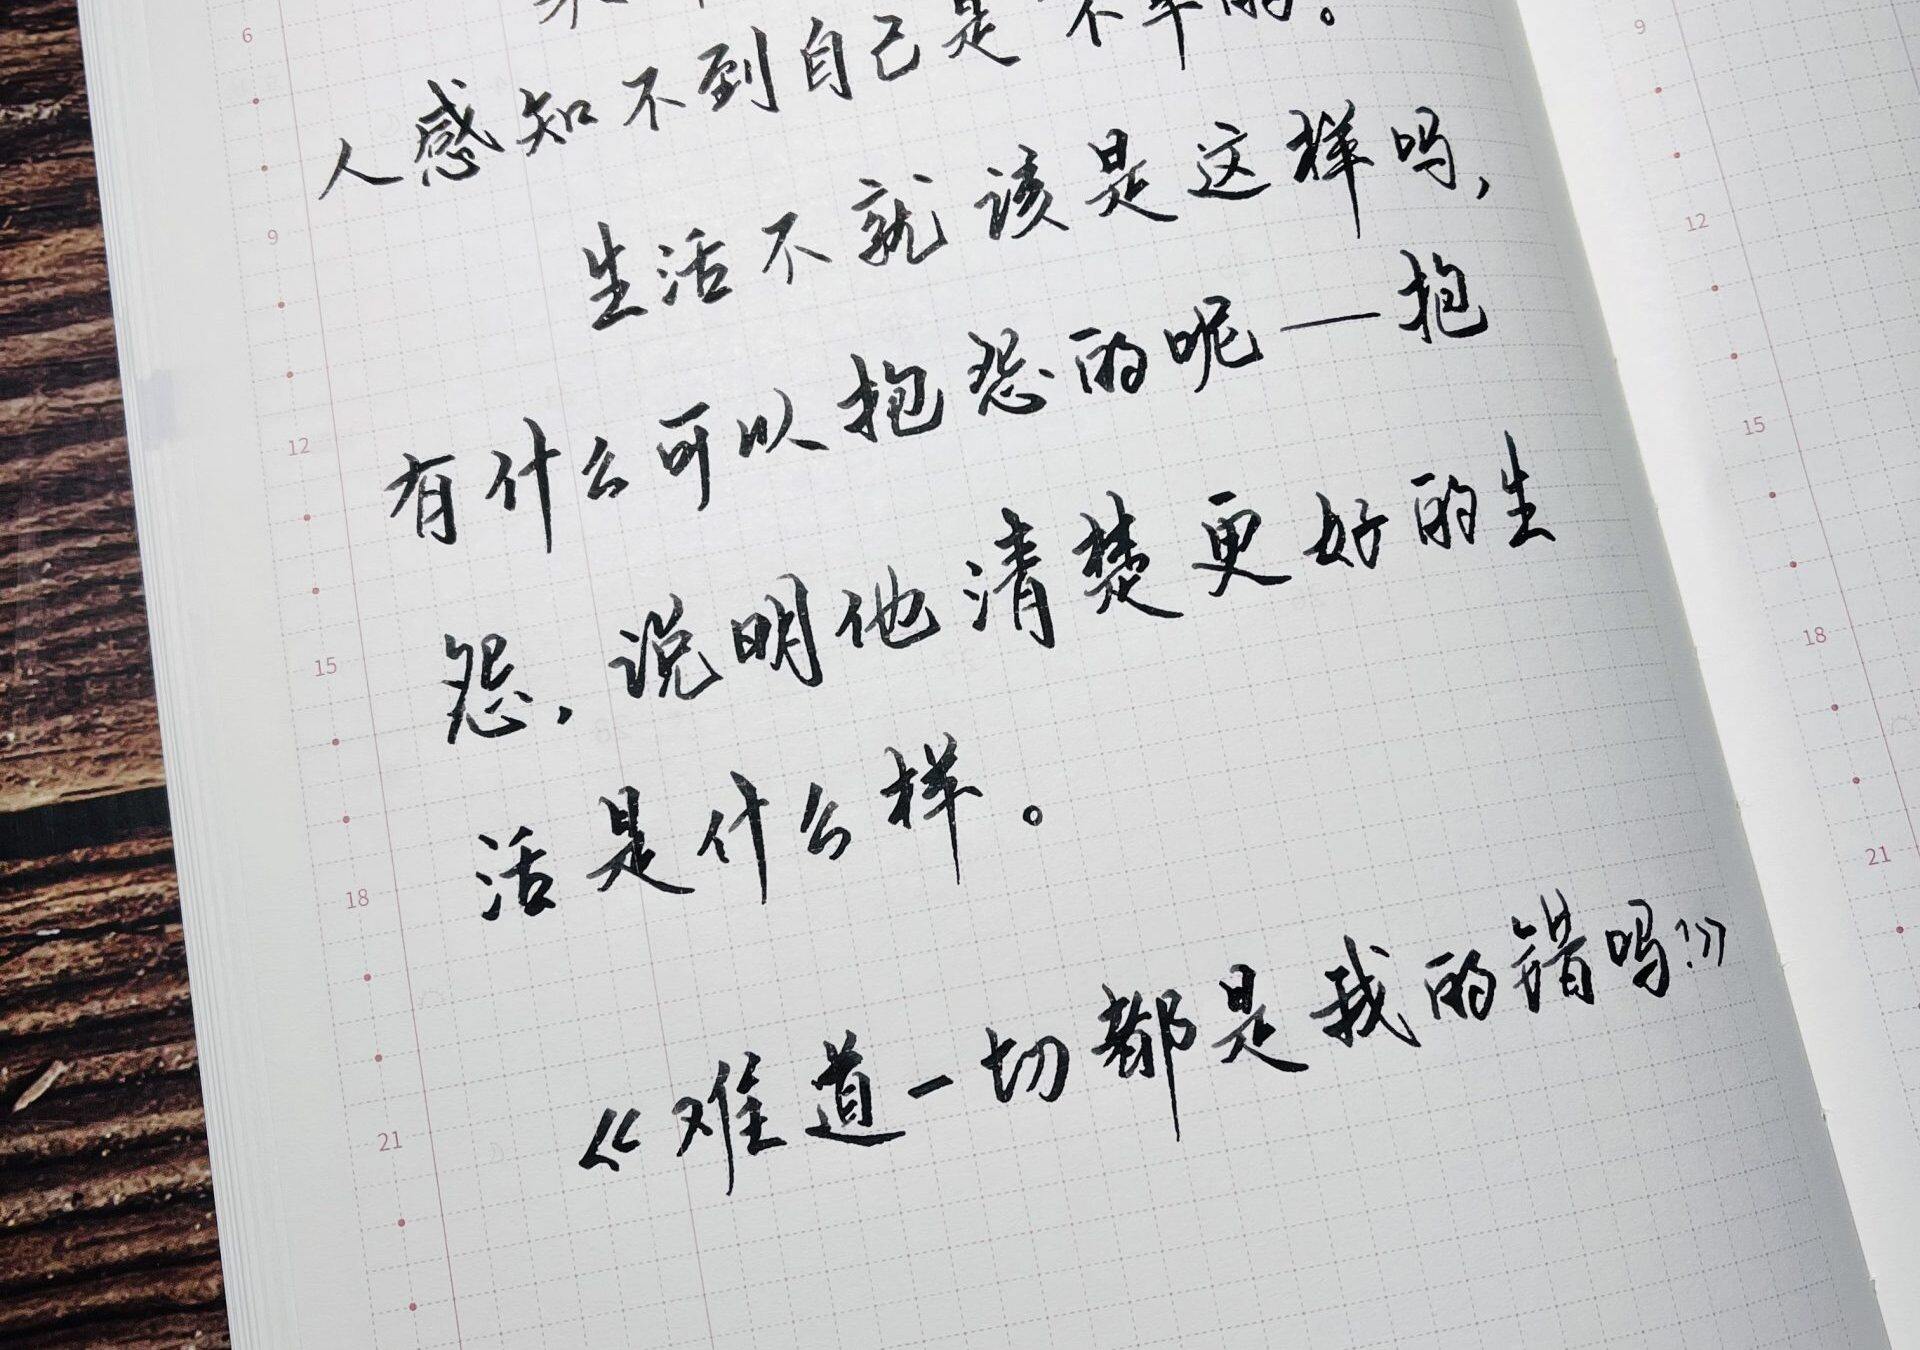 人感知不到自己是不幸的。
生活不就该是这样吗,
有什么可以抱怨的呢—抱
怨,说明他清楚更好的生
活是什么样。
《难道一切都是我的错吗?》
6
9
12
15
18
21
9
12
15
18
21